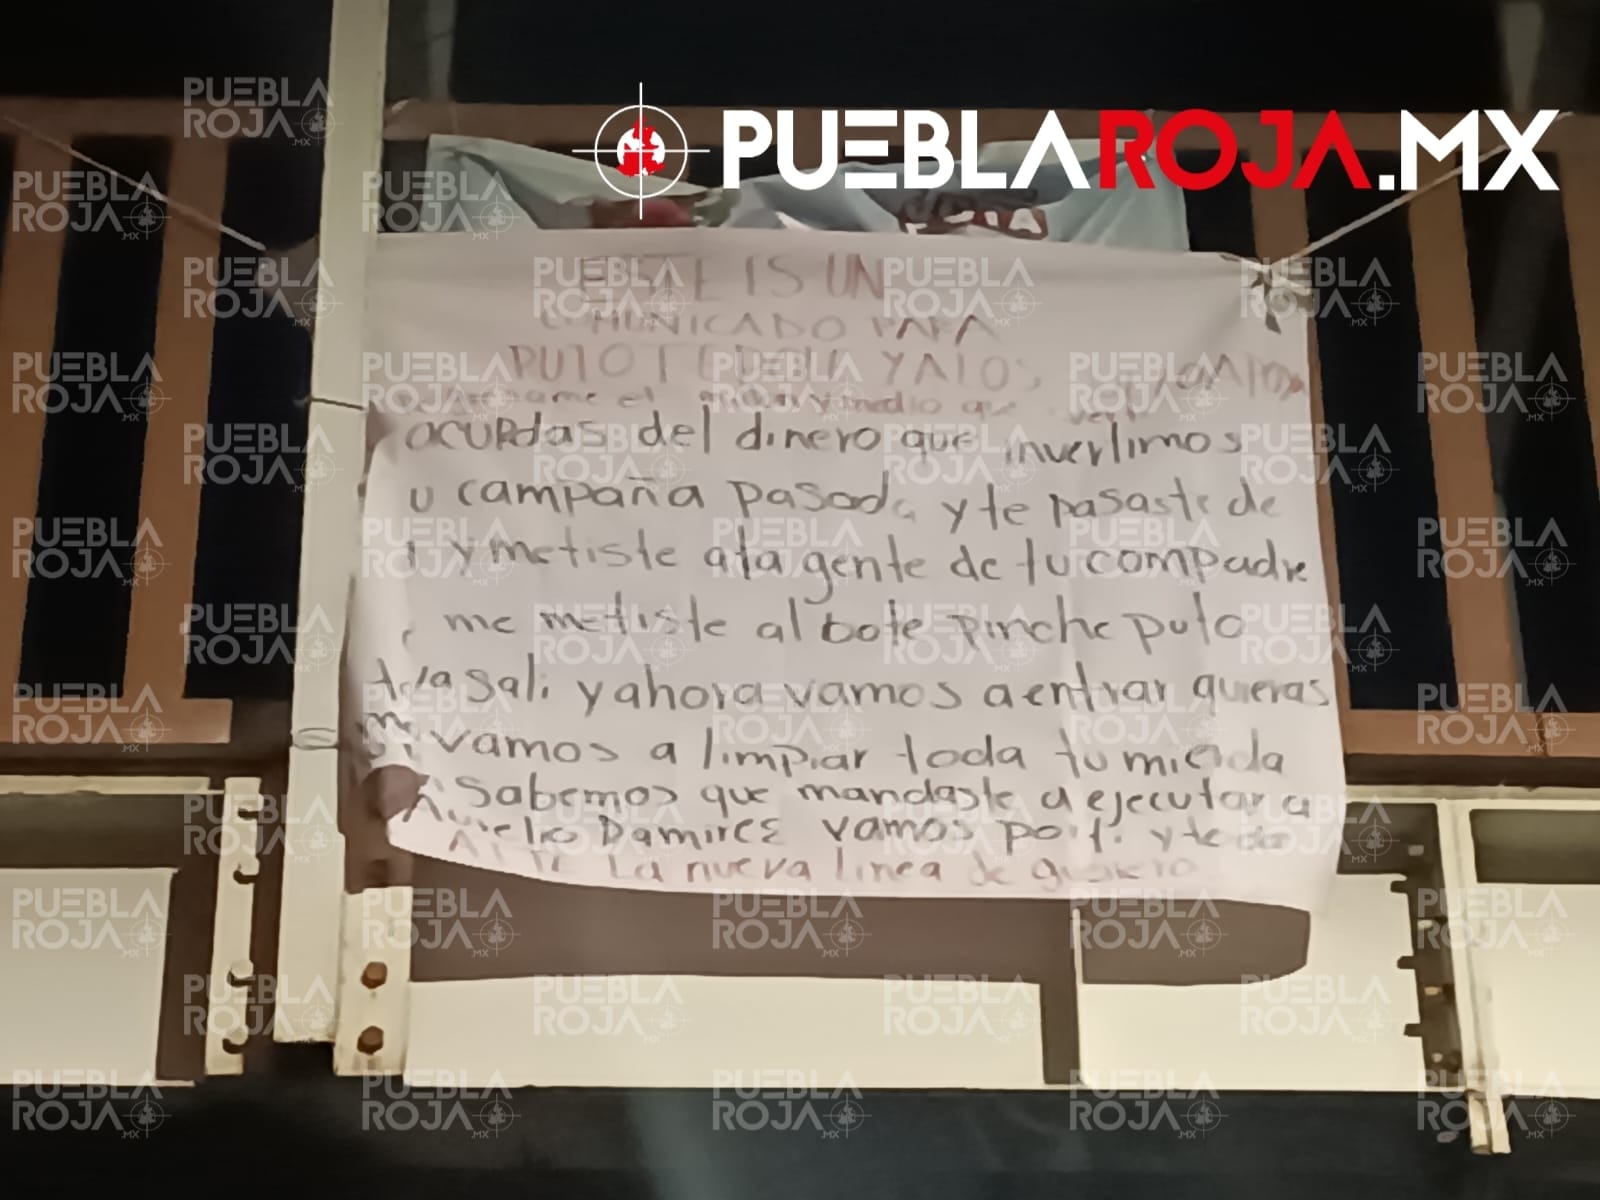 PUEBLAROJA.MX
ESTE IS UN
COMUNICADO PARA
PUTO Y A LOS
acurdas del dinero que invertimos
u campaña pasada y te pasaste de
y metiste a la gente de tu compadre
me metiste al bote pinche puto
ya sali y ahora vamos a entrar quieras
vamos a limpiar toda tu mierda
Sabemos que mandaste a ejecutar a
Aurelio Damires vamos por ti y te
ATTE La nueva linea de
PUEBLA
ROJA
.MX